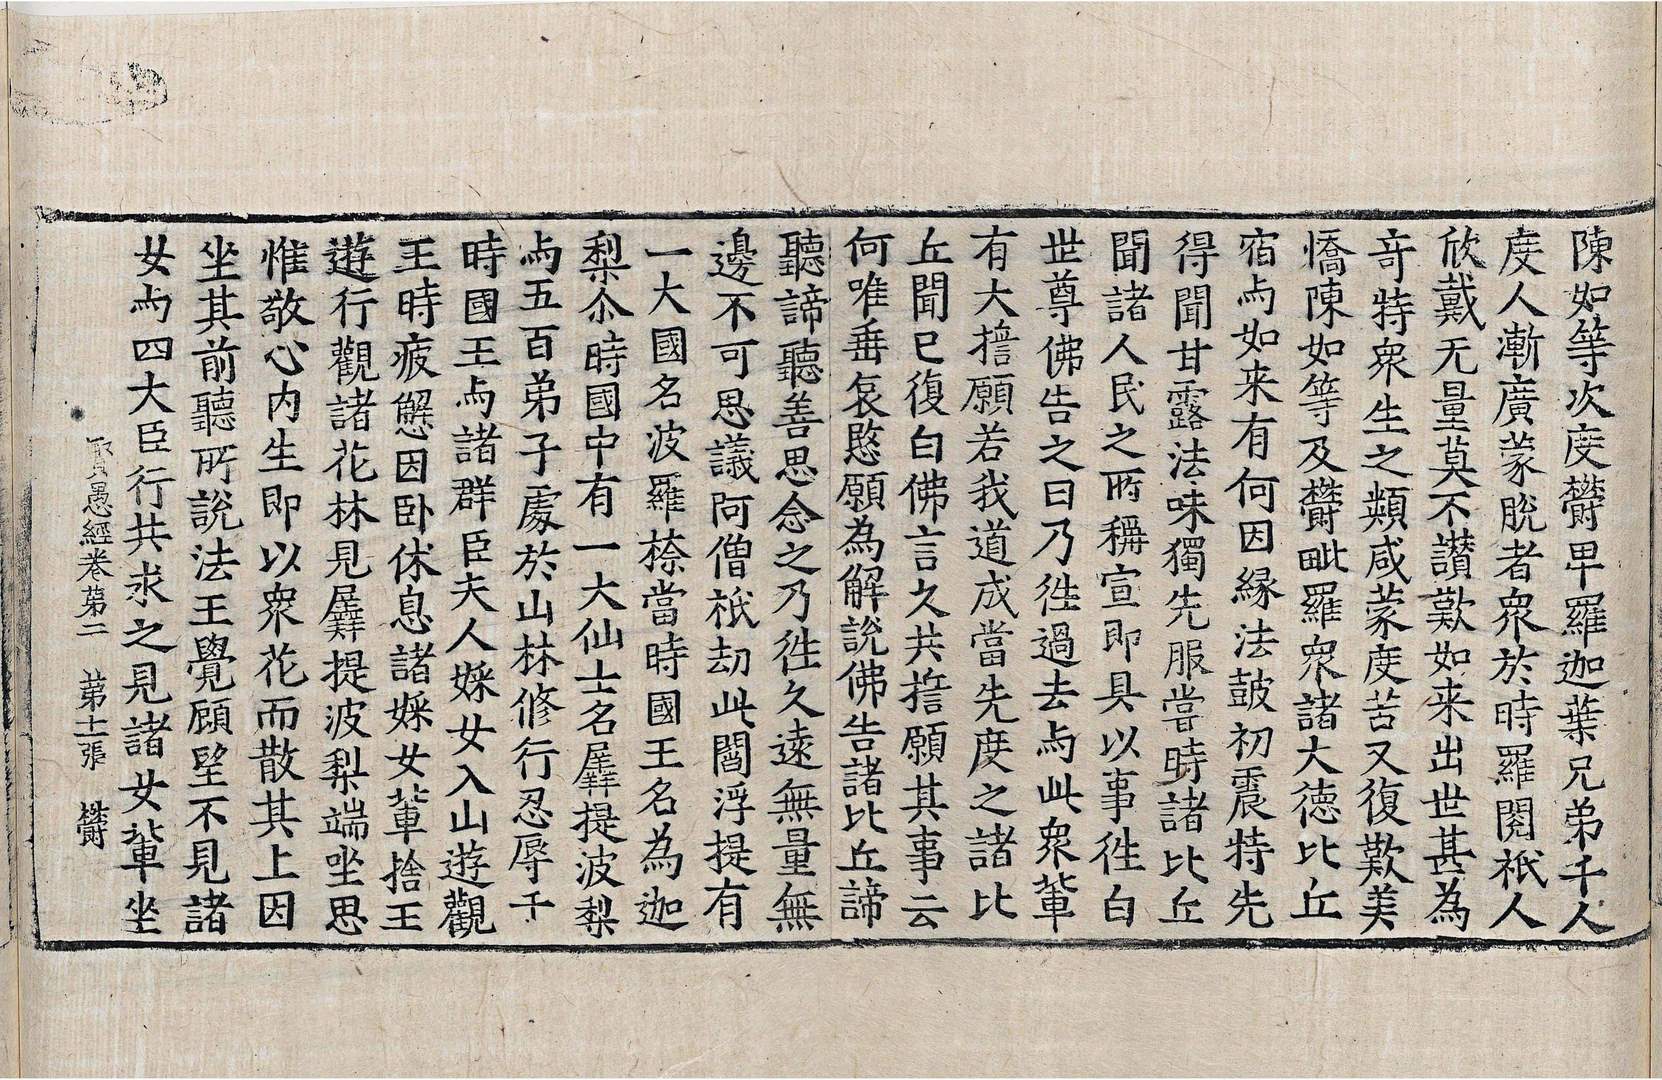 陳如等次度欝卑羅迦葉兄弟千人
度人漸廣蒙脫者衆於時羅閱祇人
欣戴无量莫不讃歎如来出世甚為
竒特衆生之類咸蒙度苦又復歎美
憍陳如等及欝毗羅衆諸大德比丘
宿与如来有何因縁法鼓初震特先
得聞甘露法味獨先服甞時諸比丘
聞諸人民之所稱宣即具以事徃白
世尊佛告之曰乃徃過去与此衆輩
有大擔願若我道成當先度之諸比
丘聞已復白佛言久共擔願其事云
何唯垂哀愍願為解說佛告諸比丘諦
聽諦聽善思念之乃徃久遠無量無
邊不可思議阿僧祇劫此閻浮提有
一大國名波羅㮈當時國王名為迦
梨尒時國中有一大仙士名羼提波梨
与五百弟子處於山林修行忍辱于
時國王与諸群臣夫人婇女入山遊觀
王時疲懈因卧休息諸婇女輩捨王
遊行觀諸花林見羼提波梨端坐思
惟敬心内生即以衆花而散其上因
坐其前聽所說法王覺顧望不見諸
女与四大臣行共求之見諸女輩坐
賢愚經卷第二 第十一張 欝